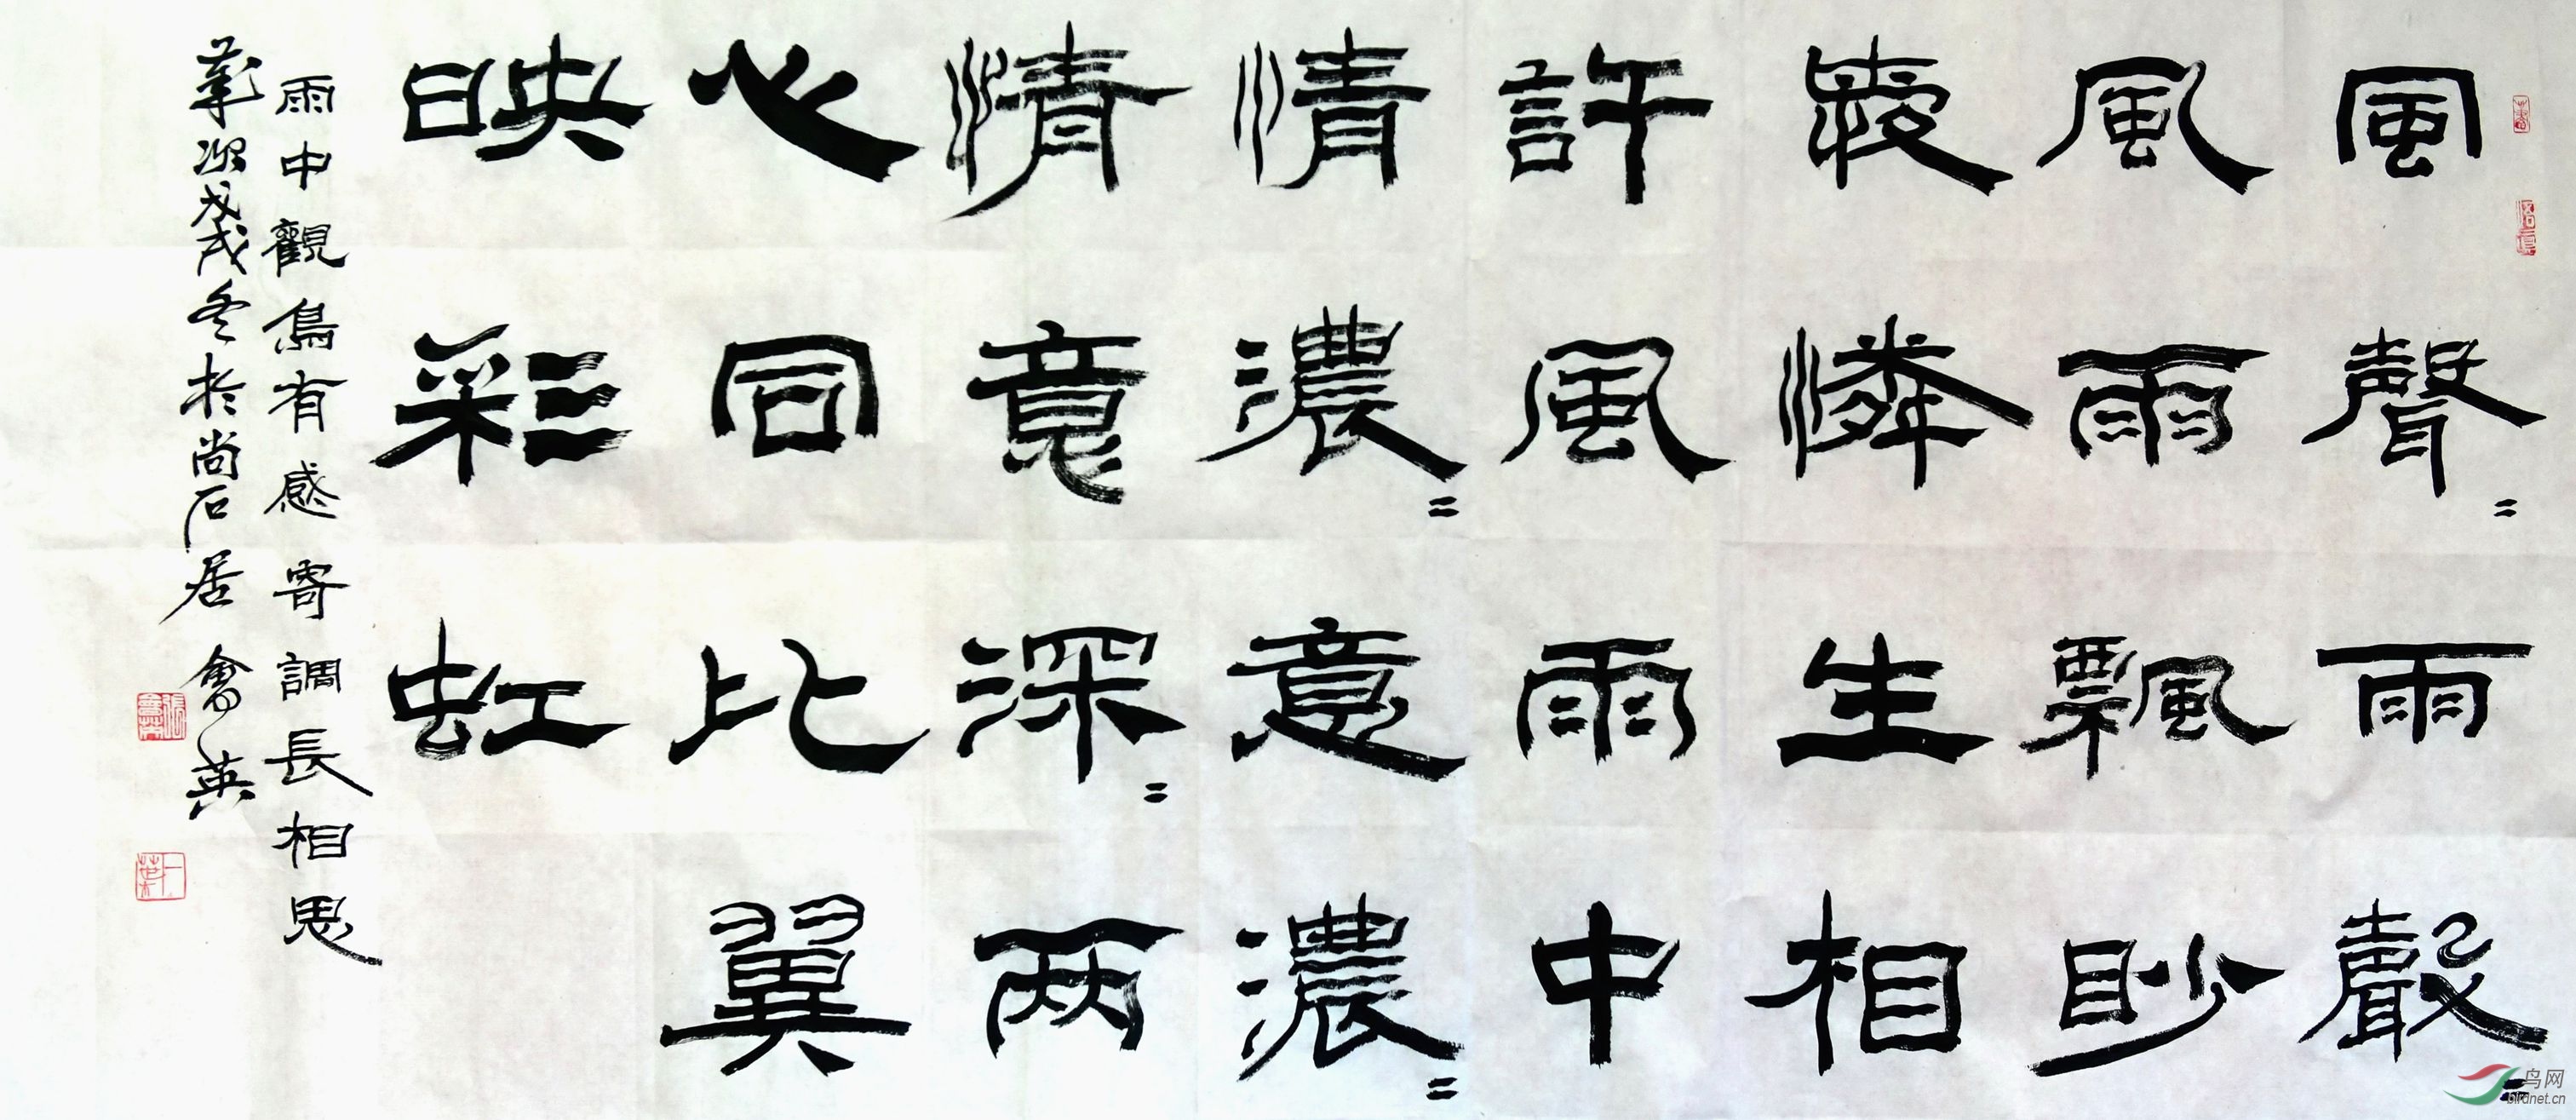 風聲〻雨聲〻
風雨飄眇
愛憐生相
許風雨中
情濃〻意濃〻
情意深〻两
心同比翼
映彩虹
雨中觀鳥有感寄調長相思
歲次戊戌冬於尚石居會英
鸟网
birdnet.cn